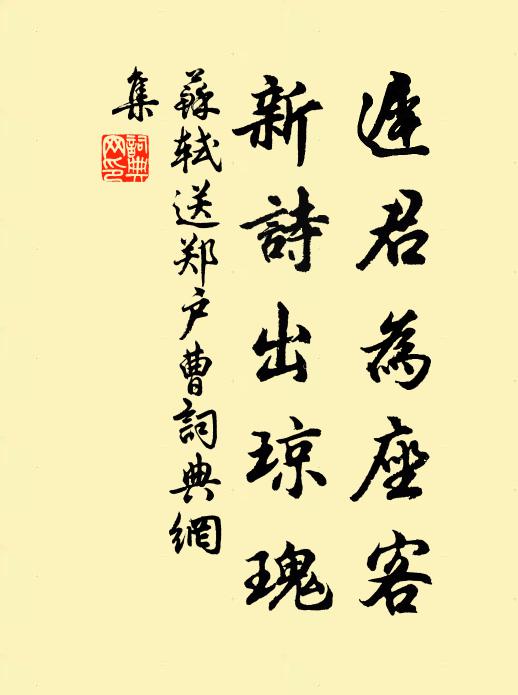 遲君為座客
新詩出琼瑰
蘇轼送郑户曹詞典網
集
詞典
网印